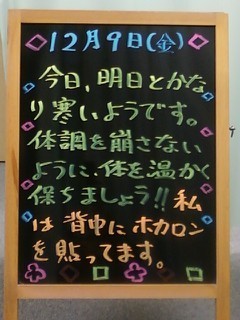 12月9日(金)
今日、明日とかな
り寒いようです。
体調を崩さない
ように、体を温かく
保ちましょう!!私
は背中にホカロン
を貼ってます。